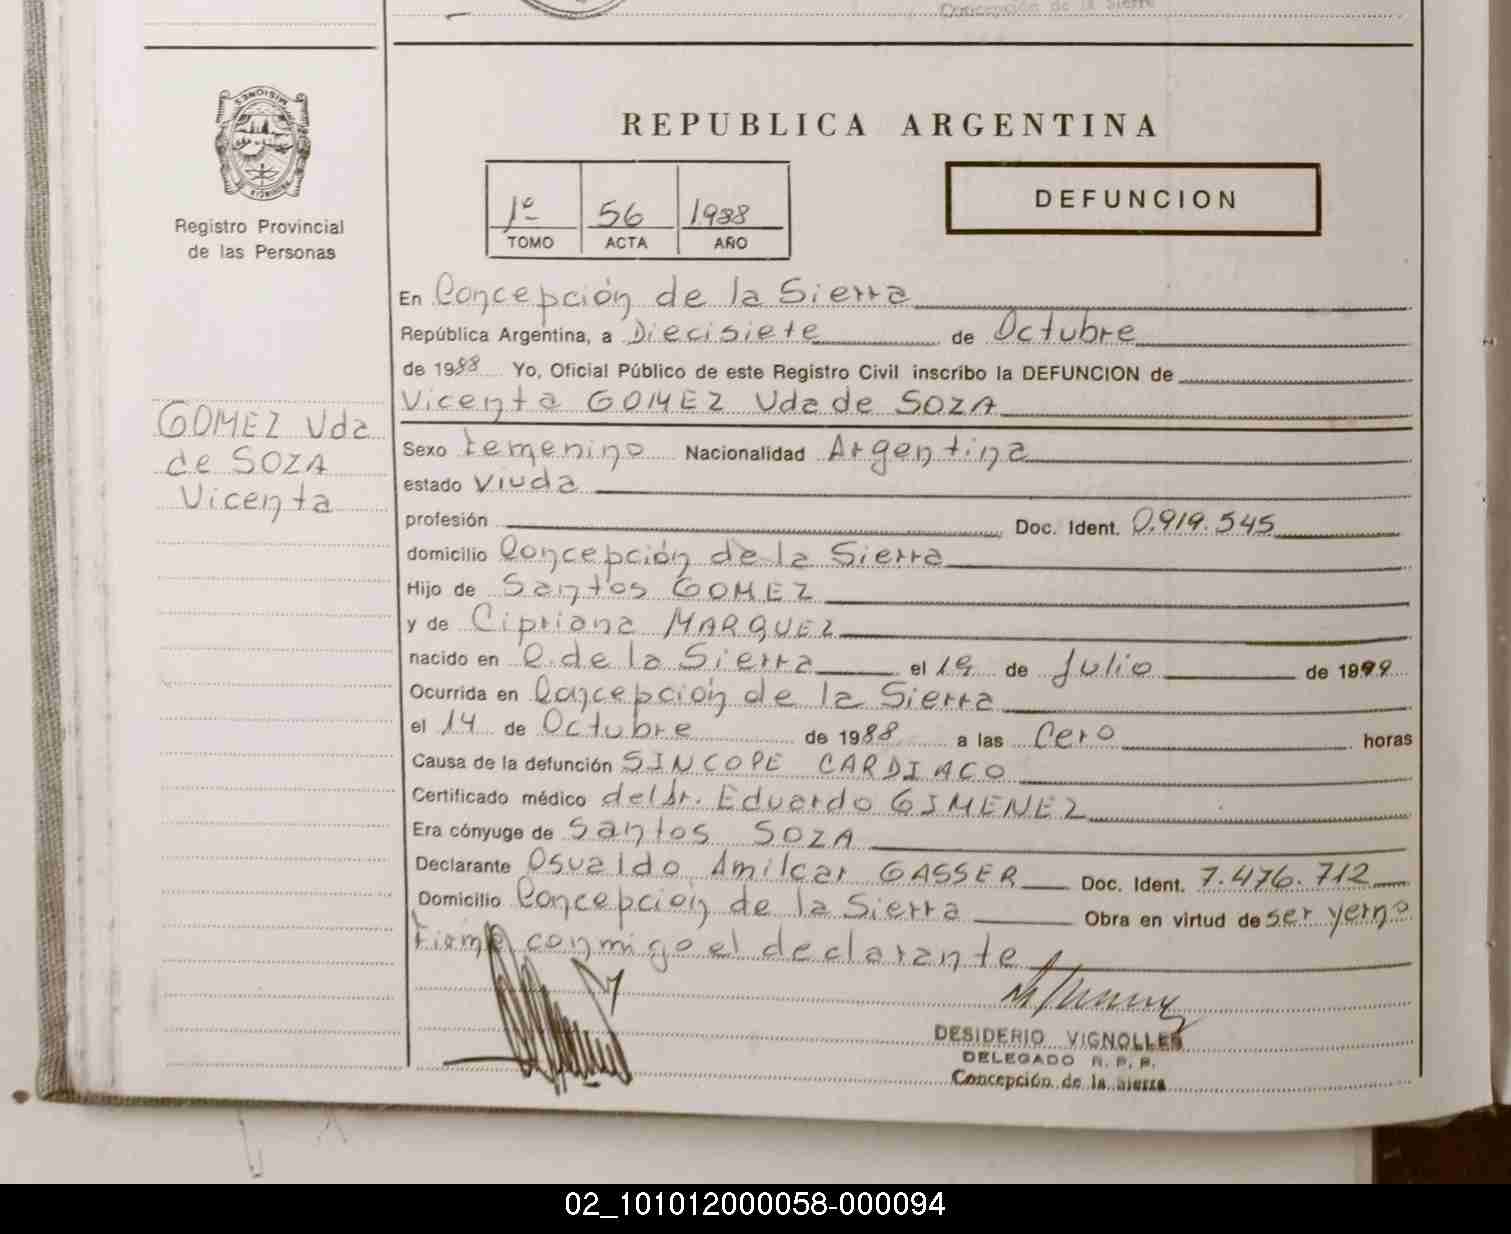 Concepción de la Sierra
REPUBLICA ARGENTINA
MISIONES
PROVINCIA
Registro Provincial
de las Personas
1º 56 1988
TOMO ACTA AÑO
DEFUNCION
En Concepción de la Sierra
República Argentina, a Diecisiete de Octubre
de 1988 Yo, Oficial Público de este Registro Civil inscribo la DEFUNCION de
Vicenta GOMEZ Vda de SOZA
GOMEZ Vda
de SOZA
Vicenta
Sexo femenino Nacionalidad Argentina
estado Viuda
profesión Doc. Ident. 0.919.545
domicilio Concepción de la Sierra
Hijo de Santos GOMEZ
y de Cipriana MARQUEZ
nacido en C. de la Sierra el 19 de Julio de 1899
Ocurrida en Concepción de la Sierra
el 14 de Octubre de 1988 a las Cero horas
Causa de la defunción SINCOPE CARDIACO
Certificado médico del Dr. Eduardo GIMENEZ
Era cónyuge de Santos SOZA
Declarante Osvaldo Amilcar GASSER Doc. Ident. 7.476.712
Domicilio Concepción de la Sierra Obra en virtud de ser yerno
Firma conmigo el declarante
DESIDERIO VIGNOLLES
DELEGADO R. P. P.
Concepción de la Sierra
02_101012000058-000094